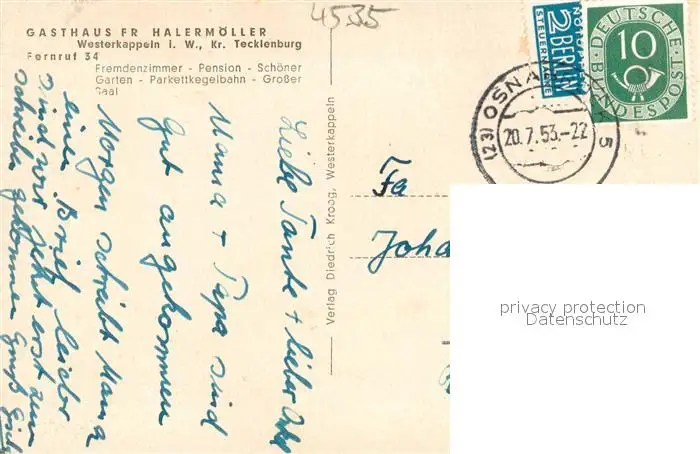 4535
GASTHAUS FR HALERMÖLLER
Westerkappeln i. W., Kr. Tecklenburg
Fernruf 34
Fremdenzimmer - Pension - Schöner
Garten - Parkettkegelbahn - Großer
Saal
Liebe Tante + lieber Onkel
Mama + Papa sind
gut angekommen
Morgen schreibt Mama
einen Brief leider
sind wir jetzt erst zum
schreiben gekommen Gruß
Verlag Diedrich Kroog, Westerkappeln
NOTOPFER
2 BERLIN
STEUERMARKE
DEUTSCHE
BUNDESPOST
10
(23) OSNA
20.7.53.-22
5
Fa
Joha
privacy protection
Datenschutz